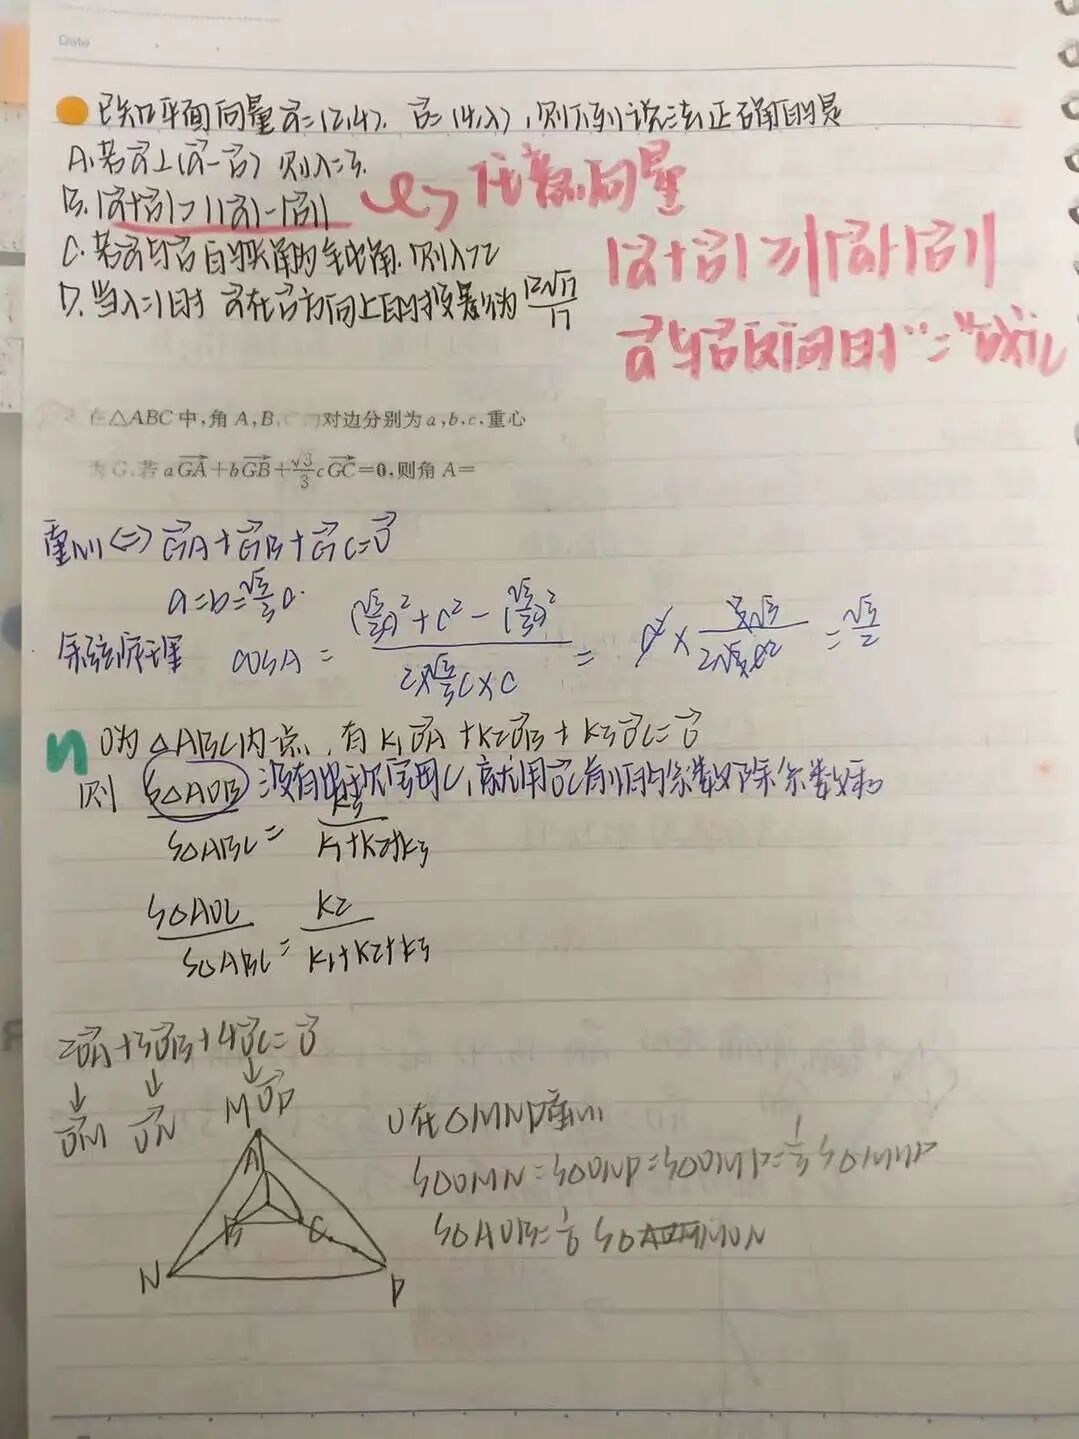 Date
已知平面向量a⃗=(2,4), b⃗=(4,λ),则下列说法正确的是
A.若a⃗⊥(a⃗-b⃗) 则λ=3.
B.|a⃗+b⃗|>||a⃗|-|b⃗|| 任意向量
|a⃗+b⃗|≥||a⃗|-|b⃗||
C.若a⃗与b⃗的夹角为锐角.则λ>-2
D.当λ=1时 a⃗在b⃗方向上的投影为12√17/17
a⃗与b⃗反向时"="成立
在△ABC中,角A,B,C的对边分别为a,b,c,重心
为G,若aGA⃗+bGB⃗+√3/3cGC⃗=0,则角A=
重心⇔GA⃗+GB⃗+GC⃗=0⃗
a=b=√3/3c.
余弦定理 cosA=
=√3/2
O为△ABC内一点,有K₁OA⃗+K₂OB⃗+K₃OC⃗=0⃗
则 S△AOB 没有出现字母C,就用OC⃗前面的系数除系数和
S△ABC = K₃/K₁+K₂+K₃
S△AOC/S△ABC = K₂/K₁+K₂+K₃
2OA⃗+3OB⃗+4OC⃗=0⃗
↓ ↓ ↓
OM⃗ ON⃗ OP⃗
M
O在△MNP重心
A
S△OMN=S△ONP=S△OMP=1/3 S△MNP
B C
S△AOB=1/6 S△MON
N P